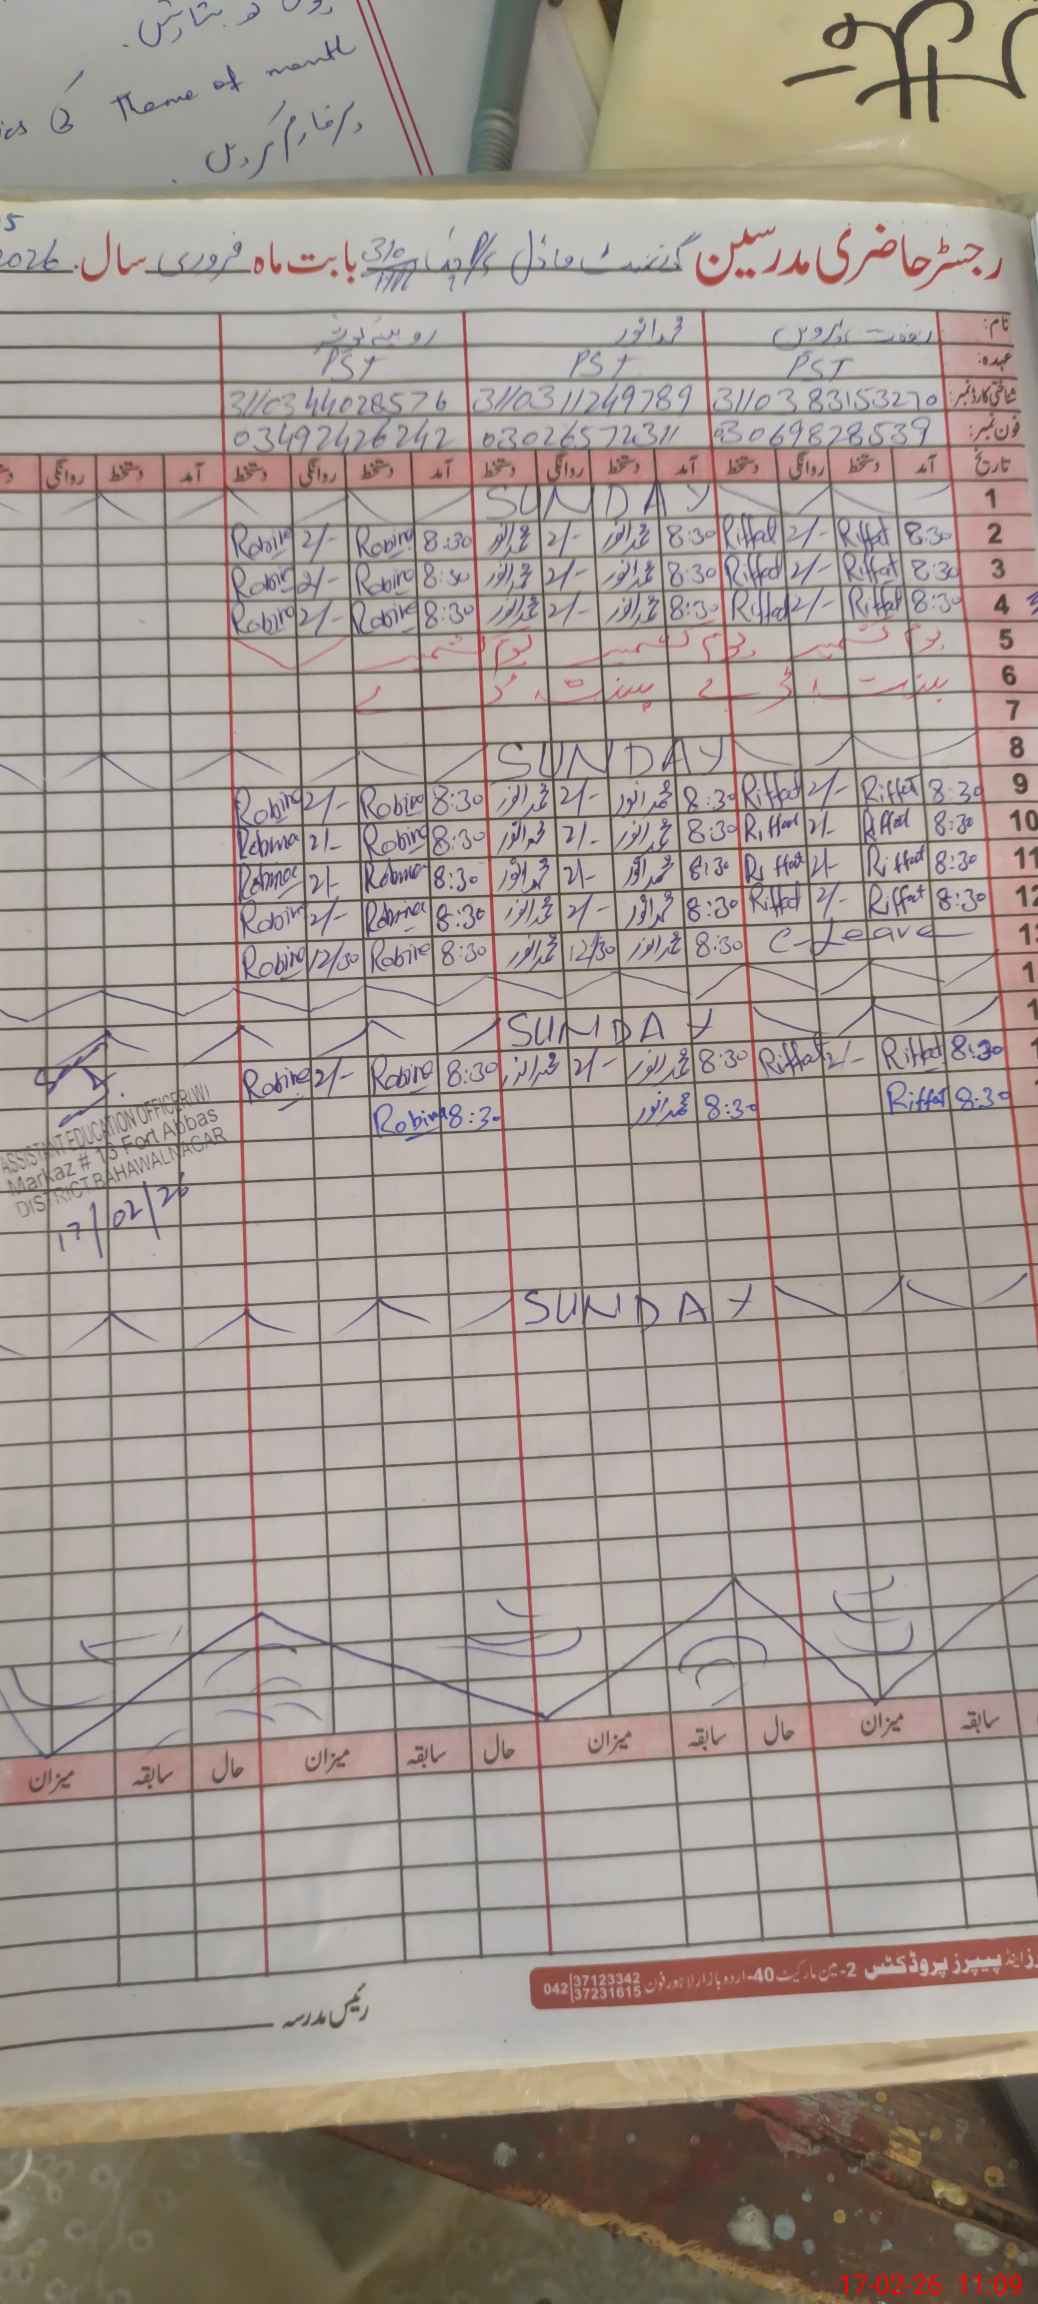 Theme of month
رجسٹر حاضری مدرسین گورنمنٹ ماڈل بابت ماہ فروری سال 2026
نام:
محمد انور
عہدہ: PST PST PST
شناختی کارڈ نمبر: 3110383153270 3110311249789 3110344028576
فون نمبر: 03069828539 03026572311 03492426242
تاریخ آمد دستخط روانگی دستخط آمد دستخط روانگی دستخط آمد دستخط روانگی دستخط آمد دستخط روانگی
1 SUNDAY
2 8:30 Riffat 2/- Riffat 8:30 محمد انور 2/- محمد انور 8:30 Robina 2/- Robina
3 8:30 Riffat 2/- Riffat 8:30 محمد انور 2/- محمد انور 8:30 Robina 2/- Robina
4 8:30 Riffat 2/- Riffat 8:30 محمد انور 2/- محمد انور 8:30 Robina 2/- Robina
5 یوم کشمیر یوم کشمیر یوم کشمیر
6
7
8 SUNDAY
9 8:30 Riffat 2/- Riffat 8:30 محمد انور 2/- محمد انور 8:30 Robina 2/- Robina
10 8:30 Riffat 2/- Riffat 8:30 محمد انور 2/- محمد انور 8:30 Robina 2/- Robina
11 8:30 Riffat 2/- Riffat 8:30 محمد انور 2/- محمد انور 8:30 Robina 2/- Robina
12 8:30 Riffat 2/- Riffat 8:30 محمد انور 2/- محمد انور 8:30 Robina 2/- Robina
1 C-Leave 8:30 محمد انور 12/30 محمد انور 8:30 Robina 12/30 Robina
1
1 SUNDAY
1 8:30 Riffat 2/- Riffat 8:30 محمد انور 2/- محمد انور 8:30 Robina 2/- Robina
8:30 Riffat 8:30 محمد انور 8:30 Robina
ASSISTANT EDUCATION OFFICER(W)
Markaz # 13 Fort Abbas
DISTRICT BAHAWALNAGAR
17/02/26
SUNDAY
سابقہ میزان حال سابقہ میزان حال سابقہ میزان حال سابقہ میزان
پیپرز پروڈکٹس 2-مین مارکیٹ 40-اردو بازار لاہور فون 042 37123342
37231615
رئیس مدرسہ
17-02-26 11:09